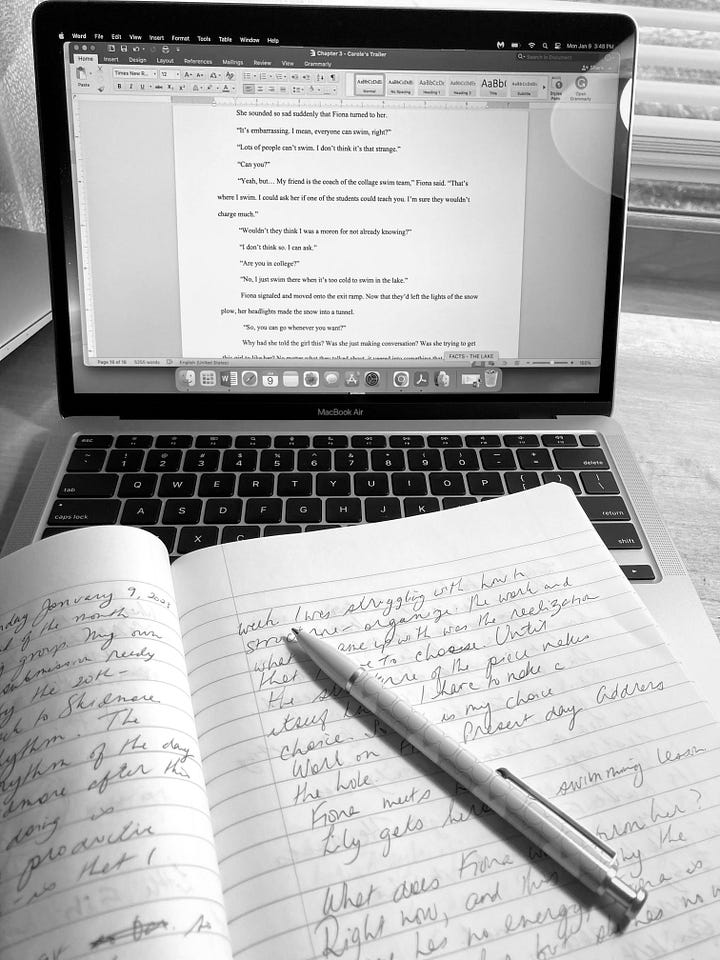 Word File Edit View Insert Format Tools Table Window Help
Mon Jan 9 3:48 PM
Chapter 3 - Carole's Trailer
Search in Document
Home Insert Draw Design Layout References Mailings Review View Grammarly
Share
Paste
Times New R... 12
AaBbCcDdEe AaBbCcDdEe AaBbCcDc AaBbCcDdEe AaBb( AaBbCcDdEe
Normal No Spacing Heading 1 Heading 2 Title Subtitle
Styles Pane
Open Grammarly
She sounded so sad suddenly that Fiona turned to her.
“It’s embarrassing. I mean, everyone can swim, right?”
“Lots of people can’t swim. I don’t think it’s that strange.”
“Can you?”
“Yeah, but… My friend is the coach of the collage swim team,” Fiona said. “That’s
where I swim. I could ask her if one of the students could teach you. I’m sure they wouldn’t
charge much.”
“Wouldn’t they think I was a moron for not already knowing?”
“I don’t think so. I can ask.”
“Are you in college?”
“No, I just swim there when it’s too cold to swim in the lake.”
Fiona signaled and moved onto the exit ramp. Now that they’d left the lights of the snow
plow, her headlights made the snow into a tunnel.
“So, you can go whenever you want?”
Why had she told the girl this? Was she just making conversation? Was she trying to get
this girl to like her? No matter what they talked about, it veered into something that
FACTS - THE LAKE
Page 16 of 16 5255 words English (United States)
MacBook Air
esc
1 2 3 4 5 6 7 8 9 0 delete
tab Q W E R T Y U I O P
caps lock A S D F G H J K return
Z X C shift
January 9, 2023
of the month
group. My own
submission ready
the 20th -
to Skidmore
rhythm. The
rhythm of the day
after this
doing is
productive
is that I
week I was struggling with how to
structure - organize. The work and
what came up with was the realization
that I have to choose. Until
the structure of the piece makes
itself I have to make a
choice. is my choice
Work on Present day. Address
the hole.
Fiona meets
Lily gets her swimming lesson
What does Fiona from her?
Right now, and this why the
has no energy. is
but